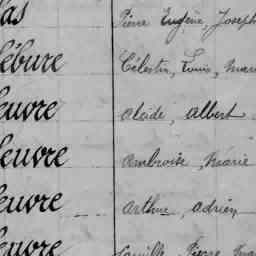 as Pierre Eugène Joseph
ébure Célestin, Louis, Mari
euvre Alcide, Albert
euvre Ambroise, Marie
euvre Arthur, Adrien
euvre Camille, Pierre